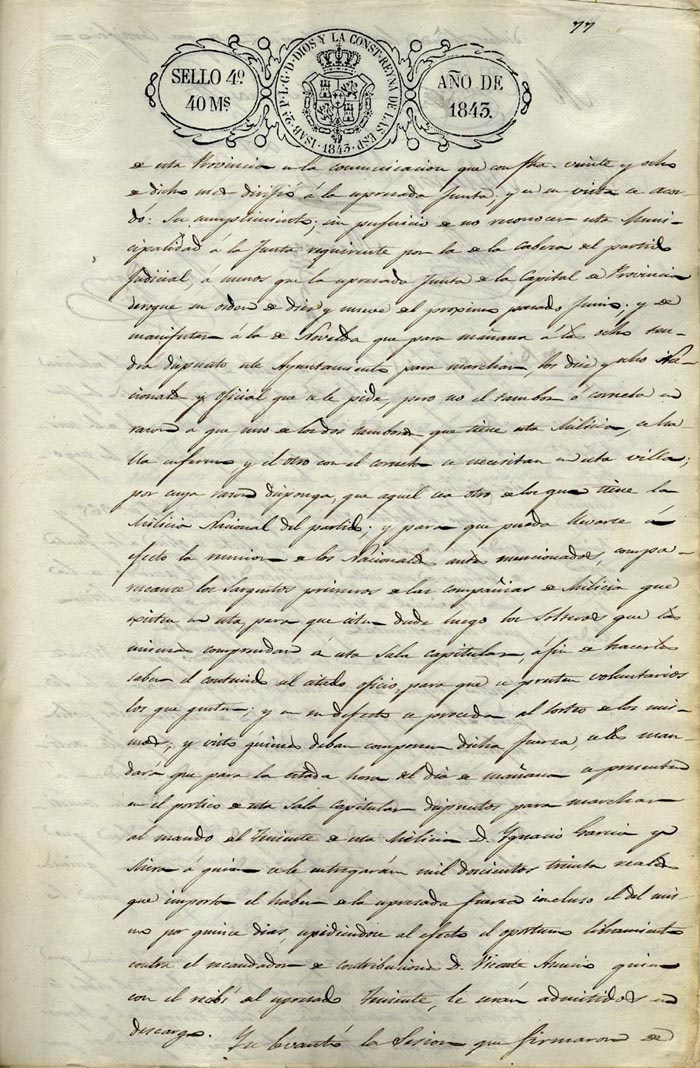 77
SELLO 4º
40 Ms
ISAB. 2ª P. L. G. D. DIOS Y LA CONST. REYNA DE LAS ESP.
1843.
AÑO DE
1843.
de esta Provincia a la comunicacion que con fha. veinte y ocho
de dicho mes dirijió á la espresada Junta; y en su vista se acor
do: Su cumplimiento, sin perjuicio de no reconocer esta Muni-
cipalidad á la Junta requirente por la de la cabeza del partido
Judicial, á menos que la espresada Junta de la Capital de Provincia
derogue su orden de diez y nueve del proximo pasado Junio; y se
manifestara á la de Novelda que para mañana á las ocho ten-
dra dispuesto este Ayuntamiento para marchar, los diez y ocho Na-
cionales y oficial que se le pide, pero no el tambor ó corneta en
razon a que uno de los dos tambores que tiene esta Milicia, se ha-
lla enfermo y el otro con el corneta se necesitan en esta villa;
por cuya razon disponga, que aquel sea otro de los que tiene la
Milicia Nacional del partido; y para que pueda llevarse á
efecto la reunion de los Nacionales antes mencionados, compa-
rezcan los Sargentos primeros de las compañias de Milicia que
existen en esta, para que citen desde luego los Solteros que las
mismas comprendan á esta Sala capitular, á fin de hacerles
saber el contenido del citado oficio, para que se presten voluntarios
los que gusten; y en su defecto se proceda al sorteo de los mis-
mos; y visto quienes deban componer dicha fuerza, se les man-
dará que para la citada hora del dia de mañana se presenten
en el portico de esta Sala capitular dispuestos para marchar
al mando del Teniente de esta Milicia D. Ygnacio Garcia y
á quien se le entregarán mil doscientos treinta reales
que importa el haber de la espresada fuerza incluso el del mis-
mo por quince dias, espidiendose al efecto el oportuno libramiento
contra el recaudador de contribuciones D. Vicente Asencio quien
con el recibí del espresado Teniente, le serán admitidos en
descargo. Se levantó la Sesion que firmaron de